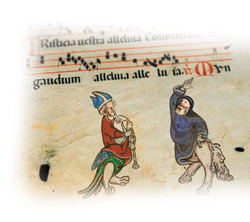 Tristicia uestra alleluia Conuertetur
gaudium alleluia alle lu ia. Mun